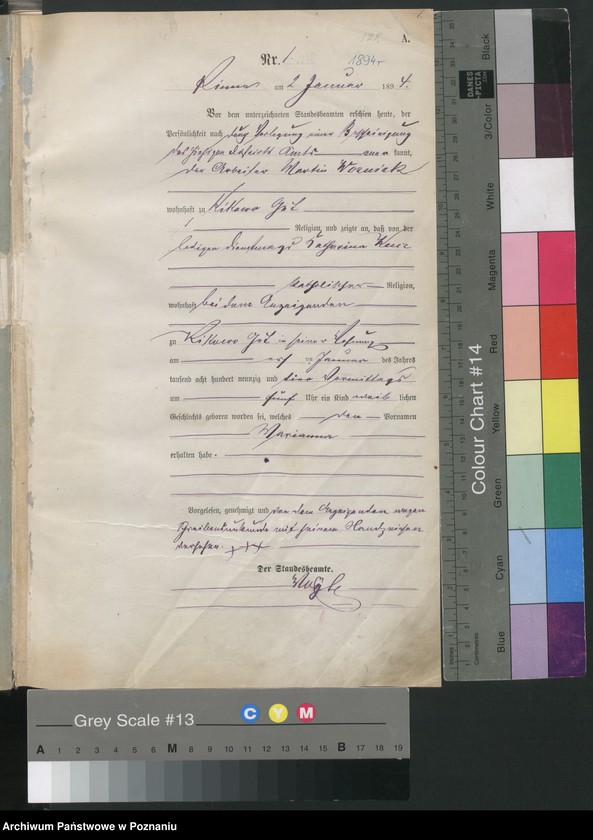 A.
Nr. 1 1894r
am 2 Januar 1894.
Vor dem unterzeichneten Standesbeamten erschien heute, der
Persönlichkeit nach durch Vorlegung einer Bescheinigung
des Distrikts Amts kannt,
der Arbeiter Martin Wozniak
wohnhaft zu Kikowo Gut
Religion, und zeigte an, daß von der
ledigen Dienstmagd Katharina
katholischer Religion,
wohnhaft bei dem Anzeigenden
zu Kikowo Gut in seiner Wohnung
am Januar des Jahres
tausend acht hundert neunzig und vier Vormittags
um fünf Uhr ein Kind weib lichen
Geschlechts geboren worden sei, welches den Vornamen
Marianna
erhalten habe.
Vorgelesen, genehmigt und von dem Anzeigenden wegen
Schreibensunkunde mit seinem Handzeichen
versehen. +++
Der Standesbeamte.
Grey Scale #13
C Y M
A 1 2 3 4 5 6 M 8 9 10 11 12 13 14 15 B 17 18 19
Colour Chart #14
Black
3/Color
White
Magenta
Red
Yellow
Green
Cyan
Blue
DANES
-PICTA
.COM
Centimetres
Archiwum Państwowe w Poznaniu